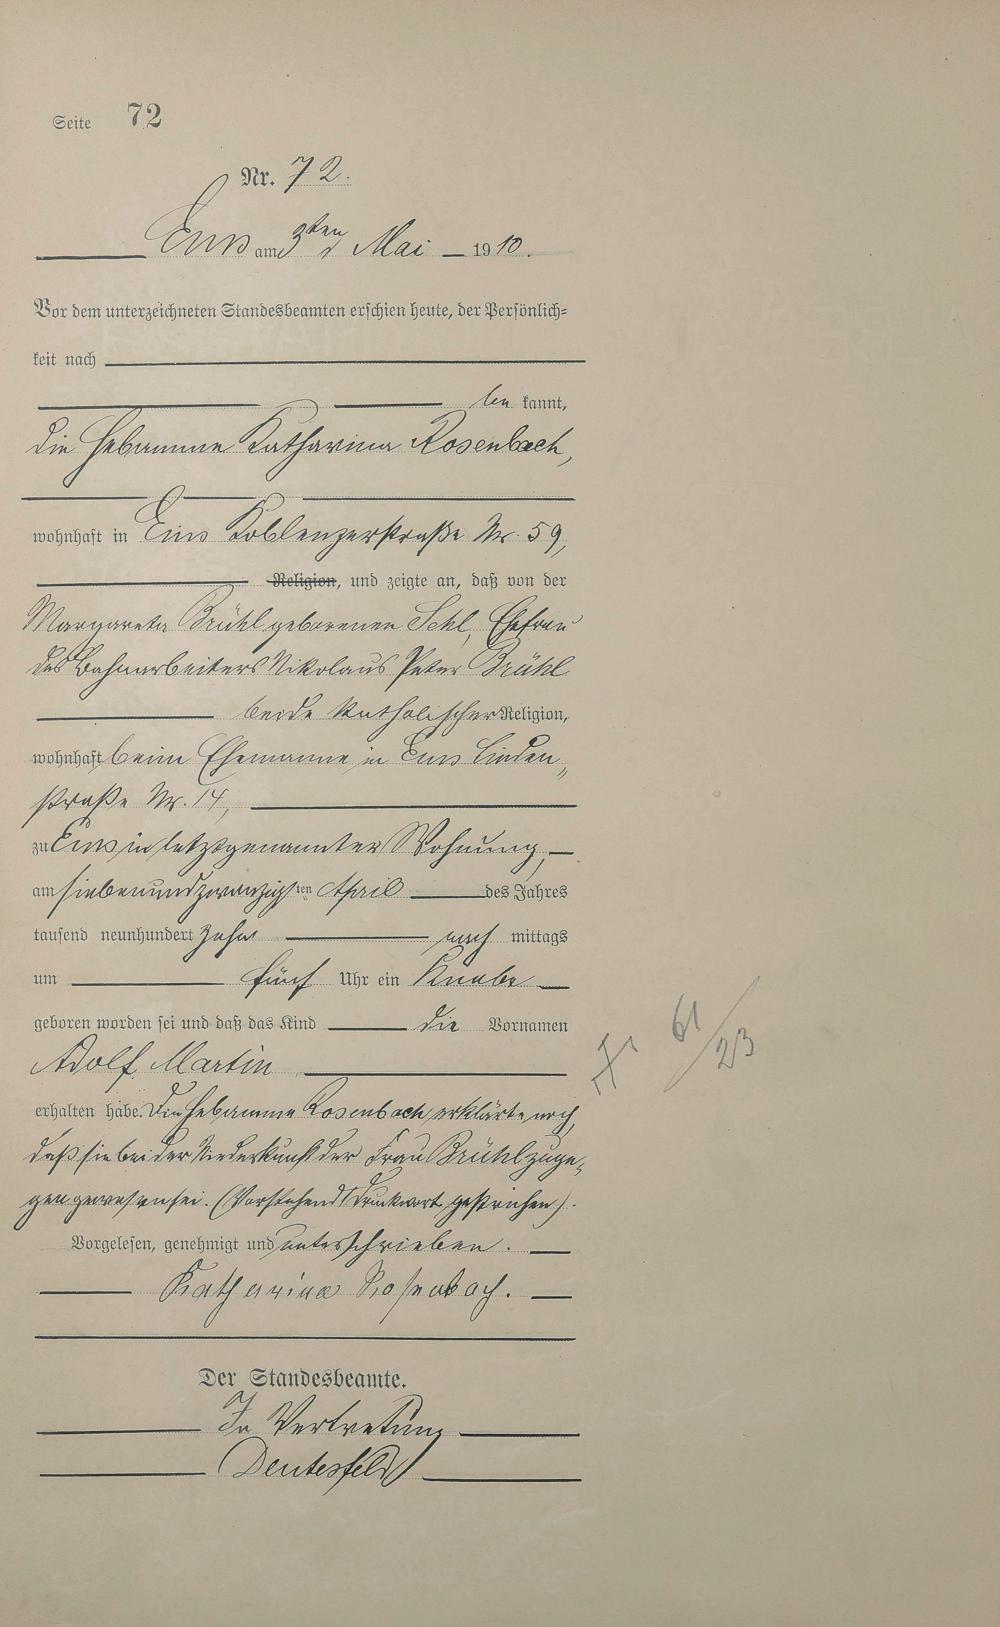 Seite 72
Nr. 72.
Ems am 3ten Mai 1910.
Vor dem unterzeichneten Standesbeamten erschien heute, der Persönlich=
keit nach
be kannt,
die Hebamme Katharina Rosenbach,
wohnhaft in Ems Koblenzerstraße Nr. 59,
Religion, und zeigte an, daß von der
Margareta Brühl geborenen Sehl, Ehefrau
des Bahnarbeiters Nikolaus Peter Brühl
beide katholischer Religion,
wohnhaft beim Ehemanne in Ems Linden„
straße Nr. 14,
zu Ems in letztgenannter Wohnung,
am siebenundzwanzigsten April des Jahres
tausend neunhundert zehn nach mittags
um fünf Uhr ein Knabe
geboren worden sei und daß das Kind die Vornamen
Adolf Martin
erhalten habe. Die Hebamme Rosenbach erklärte noch,
daß sie bei der Niederkunft der Frau Brühl zuge„
gen gewesen sei. (Vorstehend 1 Druckwort gestrichen).
Vorgelesen, genehmigt und unterschrieben.
Katharina Rosenbach.
Der Standesbeamte.
In Vertretung
61/23